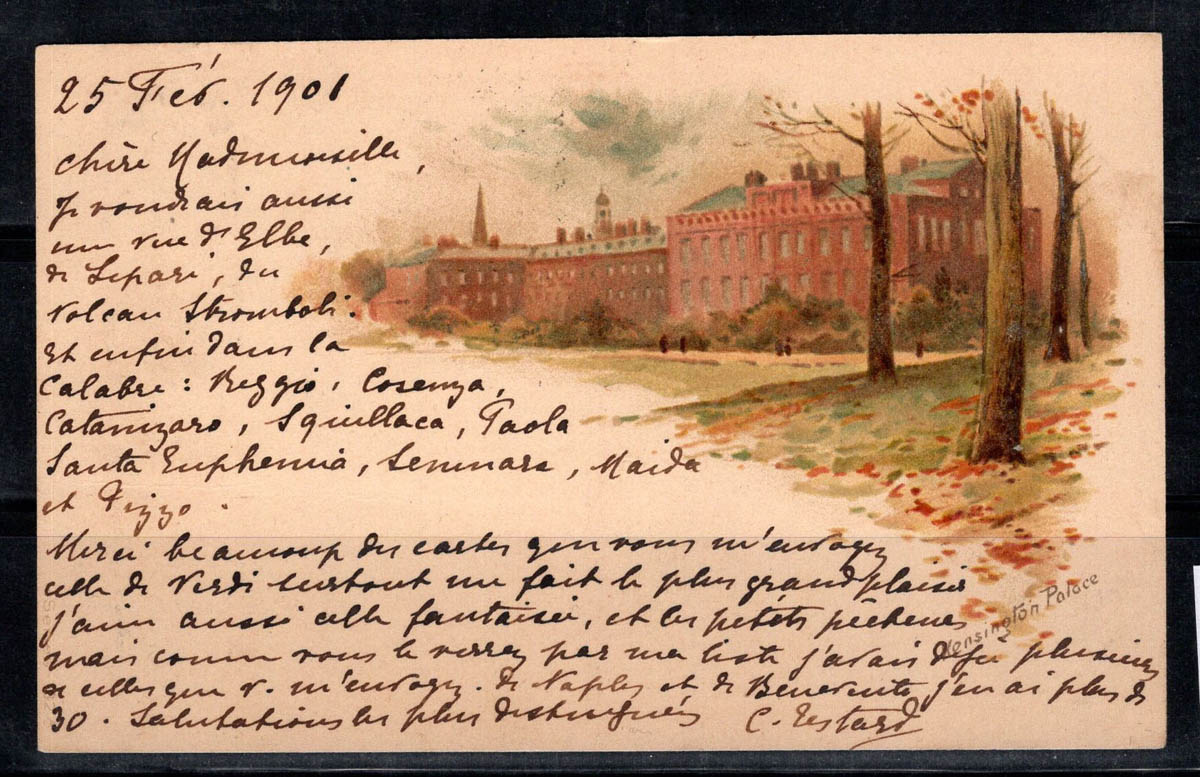 25 Fév. 1901
Chère Mademoiselle,
Je voudrais aussi
une vue d'Elbe,
de Lipari, du
volcan Stromboli.
Et enfin dans la
Calabre : Reggio, Cosenza,
Catanizaro, Squillaca, Paola
Santa Euphemia, Seminara, Maida
et Pizzo.
Merci beaucoup des cartes que vous m'envoyez
celle de Verdi surtout me fait le plus grand plaisir
j'aime aussi celle fantaisie, et les petits pêcheurs
mais comme vous le verrez par ma liste j'avais déjà plusieurs
de celles que v. m'envoyez. de Naples et de Benevento j'en ai plus de
30. Salutations les plus distinguées C. Testard
Kensington Palace